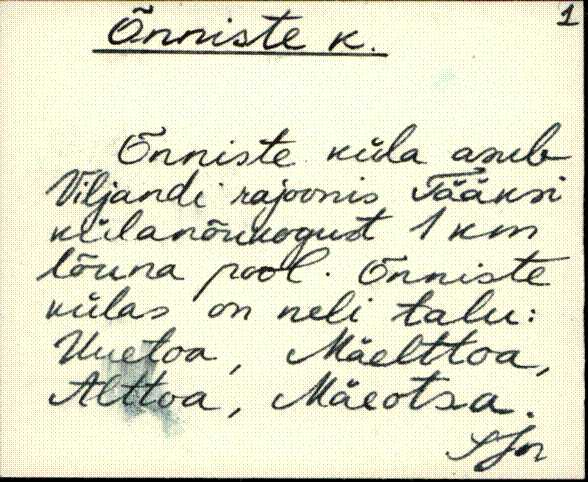 1
Õnniste k.
Õnniste küla asub
Viljandi rajoonis Tääksi
külanõukogust 1 km
lõuna pool. Õnniste
külas on neli talu:
Uuetoa, Mäelttoa,
Alttoa, Mäeotsa.